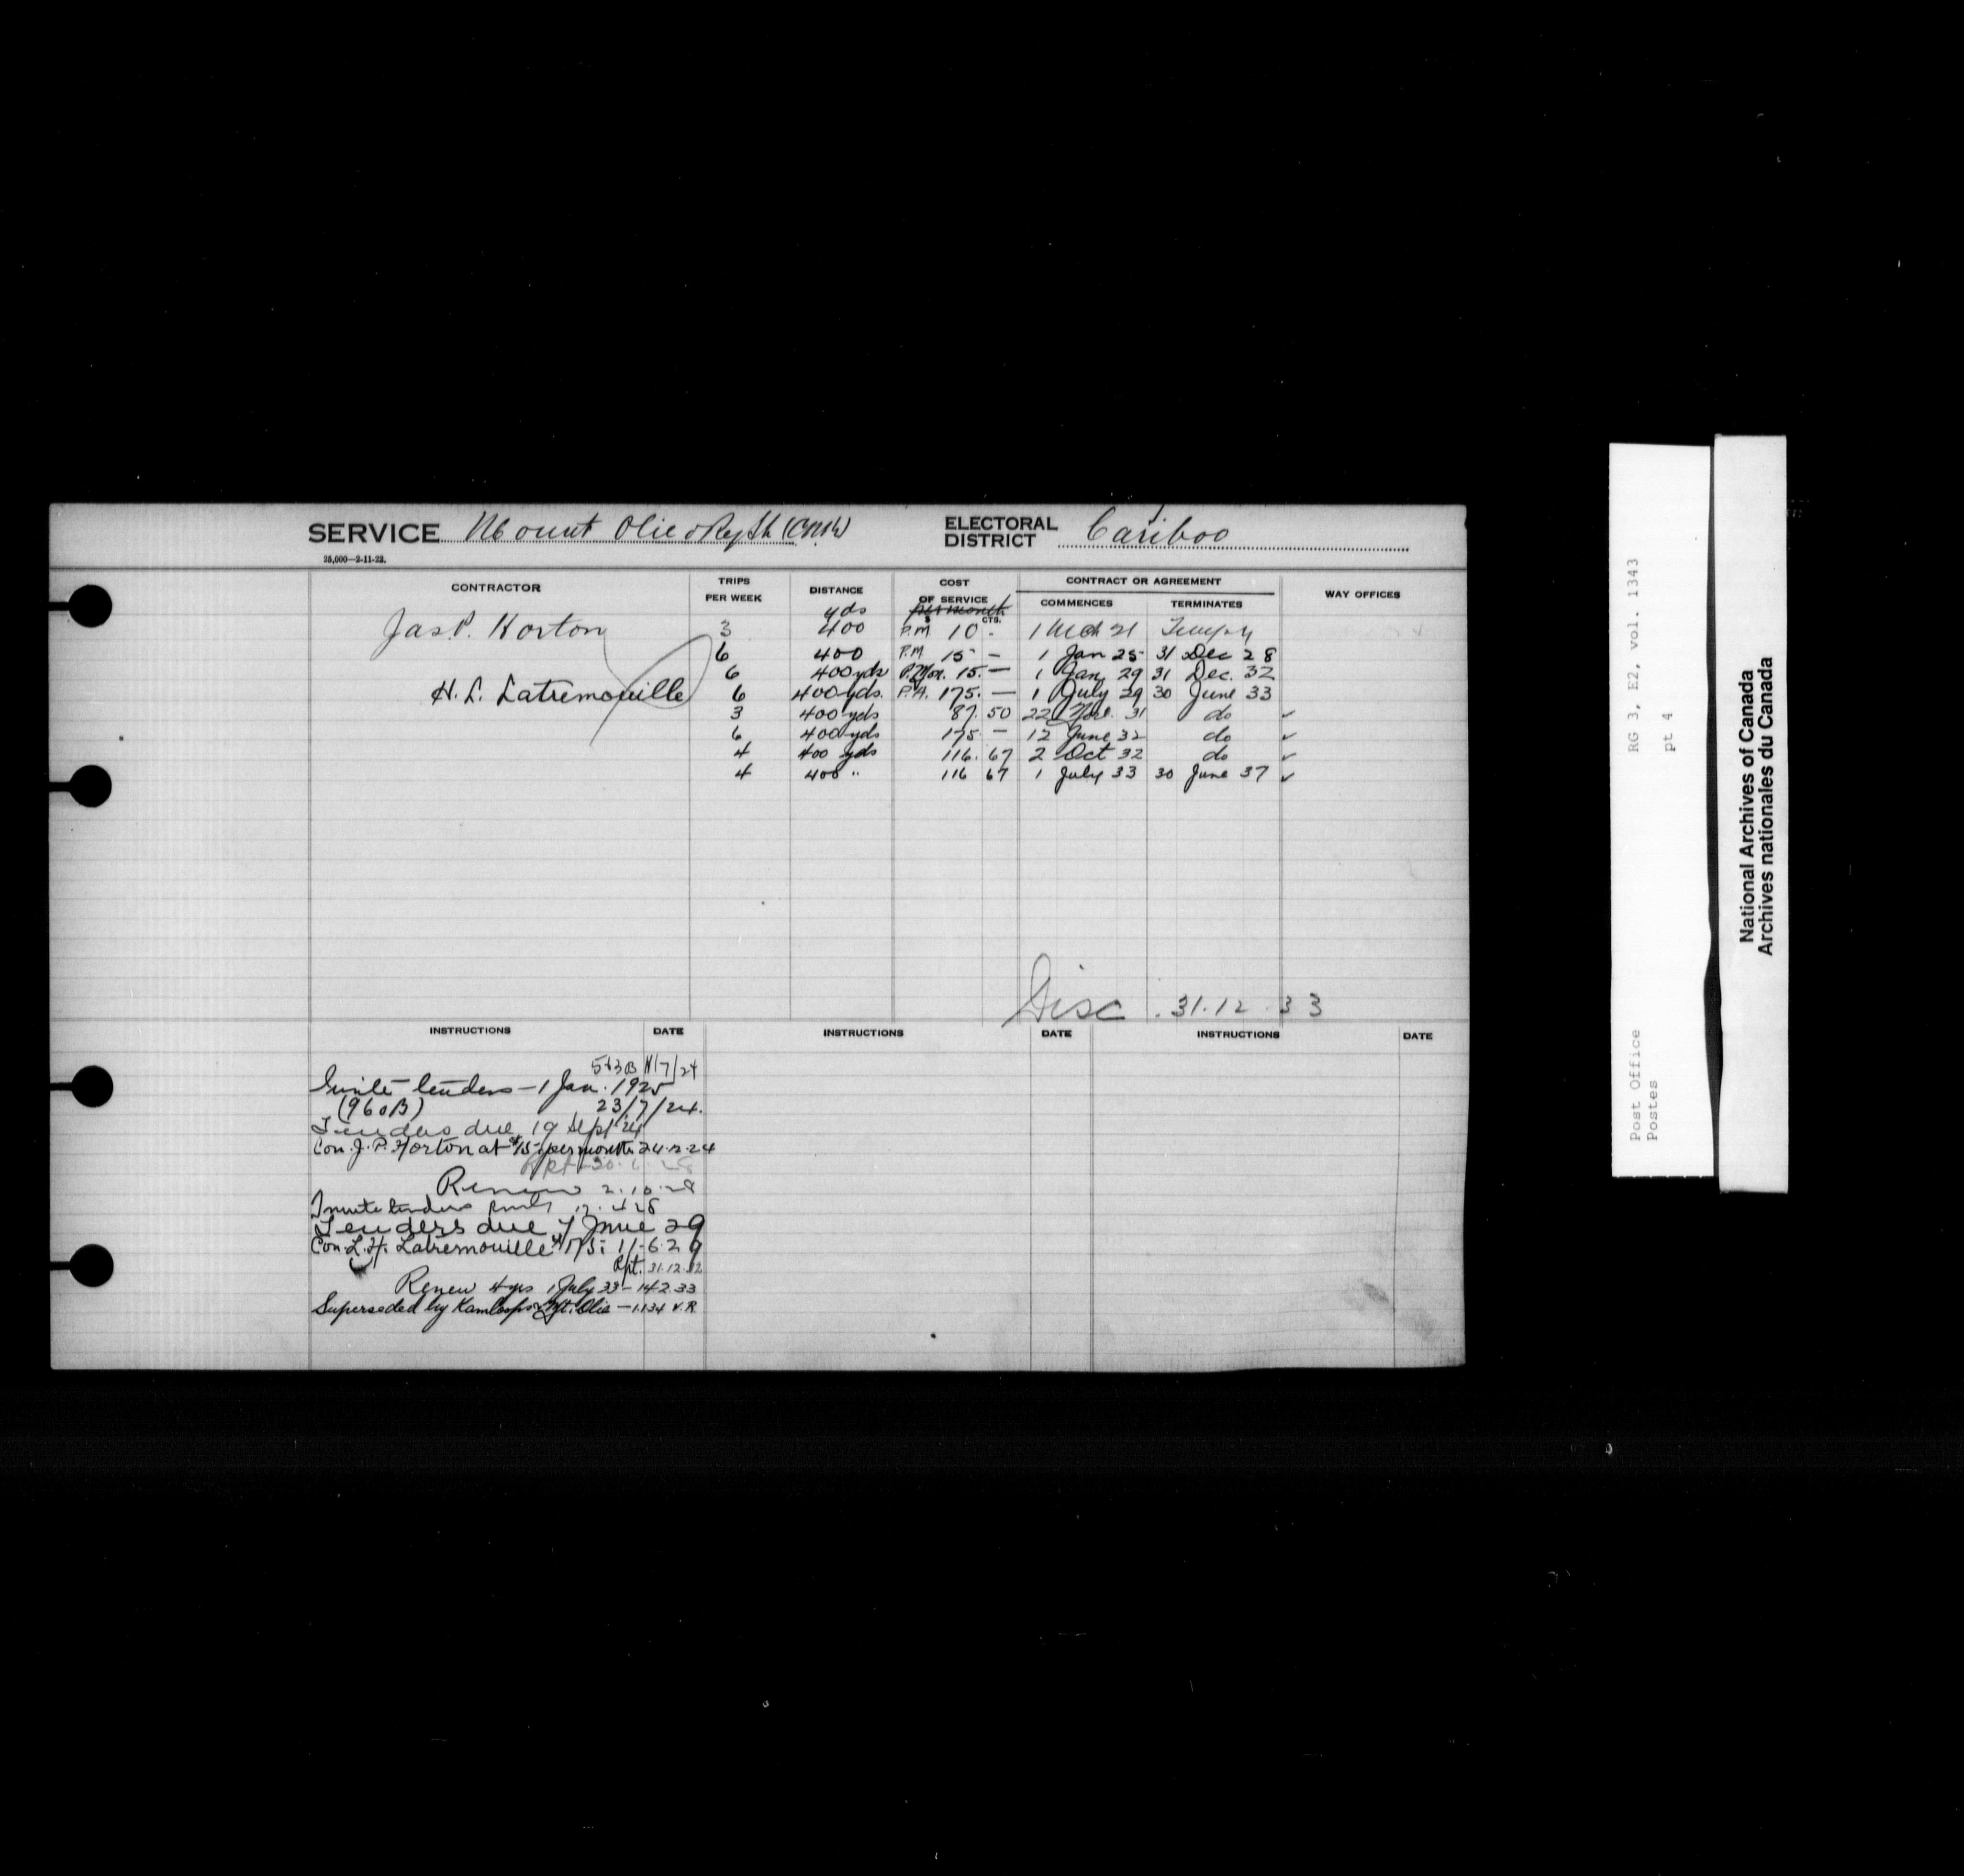 SERVICE Mount Olie & Ry St (CNR) ELECTORAL DISTRICT Cariboo
25,000—2-11-22.
CONTRACTOR TRIPS PER WEEK DISTANCE COST OF SERVICE CONTRACT OR AGREEMENT WAY OFFICES
COMMENCES TERMINATES
yds per month
$ CTS.
Jas. P. Horton 3 400 P.M 10 - 1 Mch 21 Tempy
6 400 P.M 15 — 1 Jan 25 31 Dec 28
6 400 yds P. Mon. 15. — 1 Jan 29 31 Dec. 32
H. L. Latremouille 6 400 yds. P.A. 175. — 1 July 29 30 June 33
3 400 yds 87. 50 22 31 do ✓
6 400 yds 175 — 12 June 32 do ✓
4 400 yds 116. 67 2 Oct 32 do ✓
4 400 " 116 67 1 July 33 30 June 37 ✓
Disc. 31.12.33
INSTRUCTIONS DATE INSTRUCTIONS DATE INSTRUCTIONS DATE
543B 11/7/24
Invite tenders — 1 Jan. 1925
(960B) 23/7/24.
Tenders due 19 Sept 24
Con. J. P. Horton at $15 per month 24.12.24
Rpt 30.6.28
Renew 2.10.28
Invite tenders
Tenders due 7 June 29
Con. L. H. Latremouille $175 11-6.29
Rpt. 31.12.32
Renew 4 yrs 1 July 33 — 14.2.33
Superseded by Kamloops & Mt. Olie — 1.1.34 V.R
Post Office RG 3, E2, vol. 1343
Postes pt 4
National Archives of Canada
Archives nationales du Canada